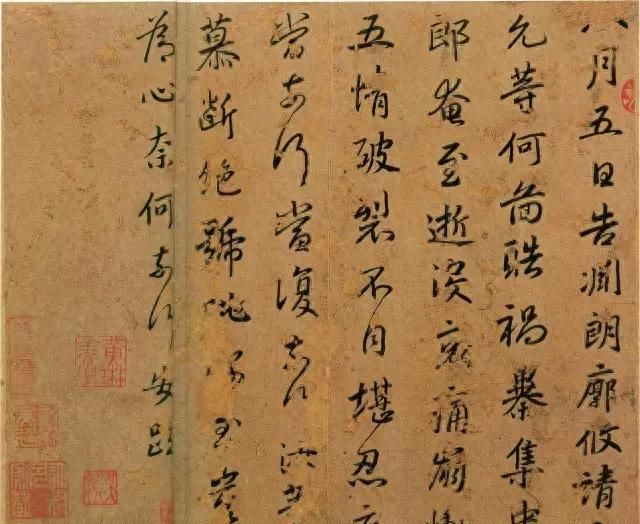 八月五日告淵朗廓攸靖
允等何圖酷禍暴集中
郎奄至逝沒哀痛崩慟
五情破裂不自堪忍
當奈何當復奈何汝等
慕斷絕號咷深至豈
為心奈何奈何安疏
黃琳美之